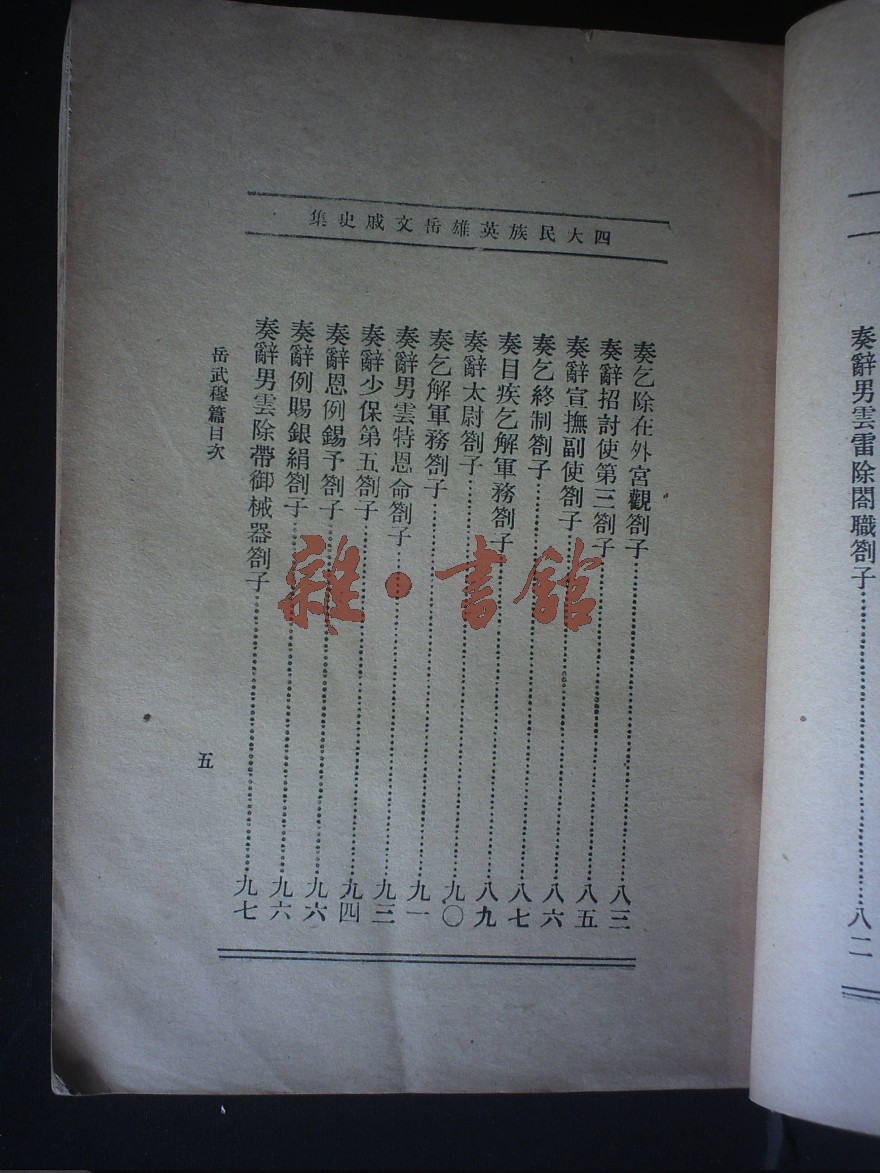 奏辭男雲雷除閤職劄子……八二
四大民族英雄岳文戚史集
奏乞除在外宮觀劄子……八三
奏辭招討使第三劄子……八五
奏辭宣撫副使劄子……八六
奏乞終制劄子……八七
奏目疾乞解軍務劄子……八九
奏辭太尉劄子……九〇
奏乞解軍務劄子……九一
奏辭男雲特恩命劄子……九三
奏辭少保第五劄子……九四
奏辭恩例錫予劄子……九六
奏辭例賜銀絹劄子……九六
奏辭男雲除帶御械器劄子……九七
岳武穆篇目次
五
雜·書館